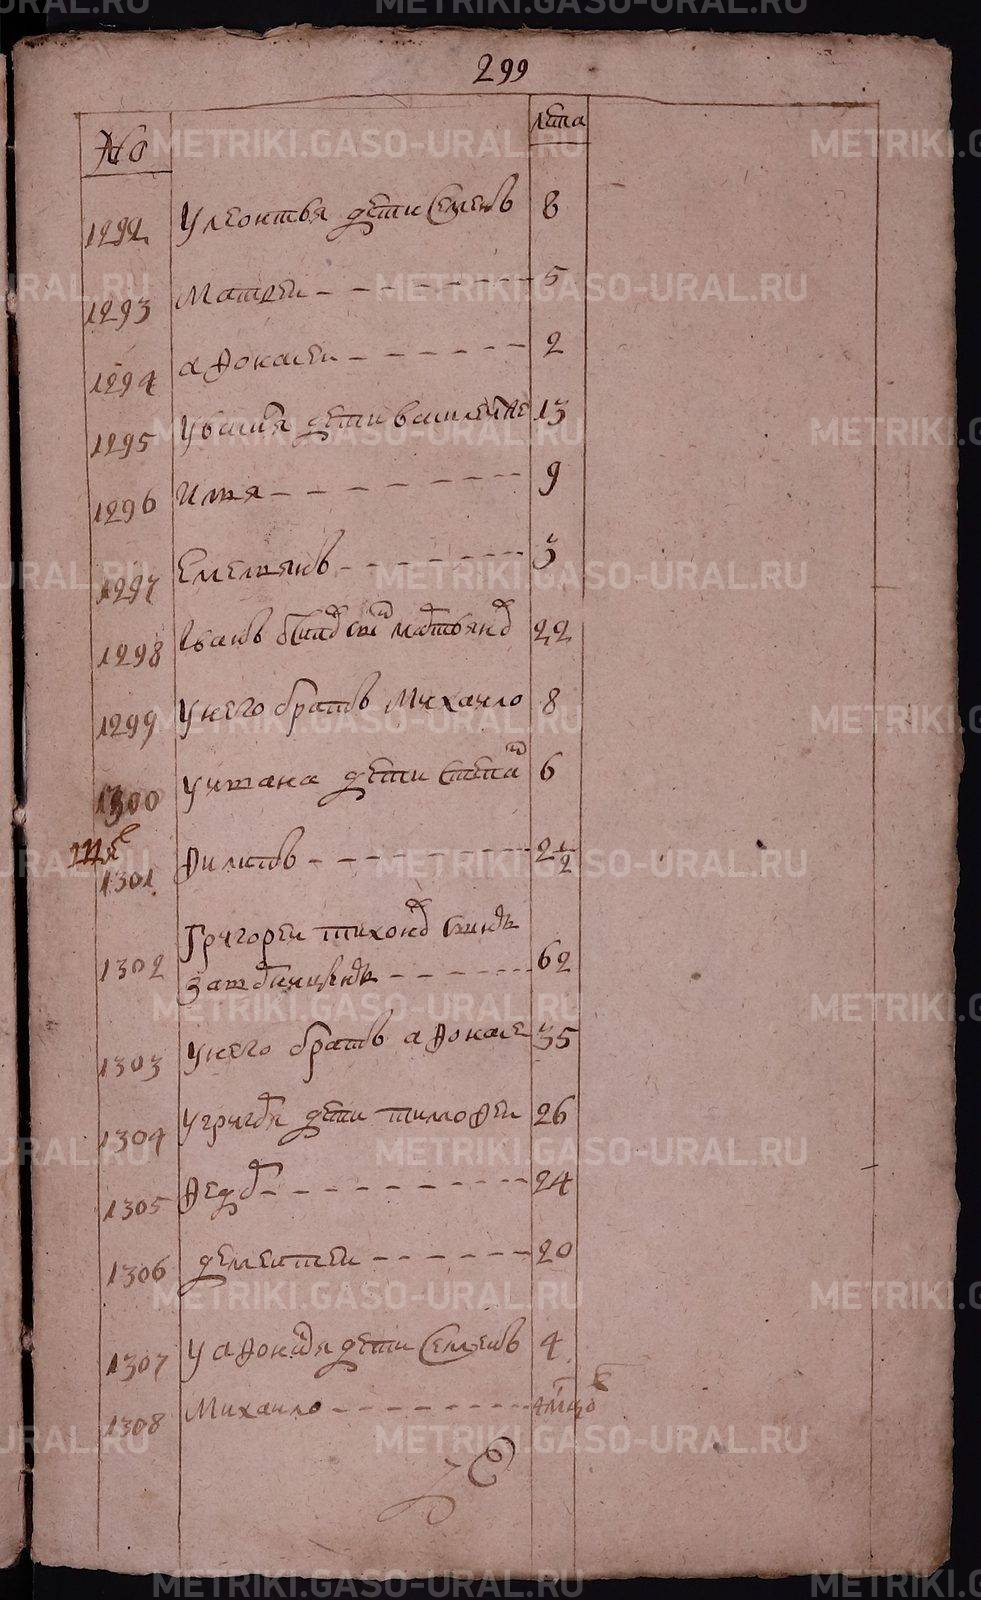 299
No
лѣта
1292 У леонтья дети Семенъ 8
1293 Матвеи 5
1294 афонасеи 2
1295 У васил'я дети василеи же 13
1296 Илья 9
1297 Емельянъ 3
1298 Iванъ матвѣянов 22
1299 У него братъ Михаило 8
1300 У дети степан 6
1301 Филипъ 2 1/2
1302 Григореи тихонов сынъ
62
1303 У него братъ афонасе 35
1304 У григоря дети тимофеи 26
1305 Федор 24
1306 дементеи 20
1307 У афонася дети Семенъ 4
1308 Михаило 4 мцо
METRIKI.GASO-URAL.RU